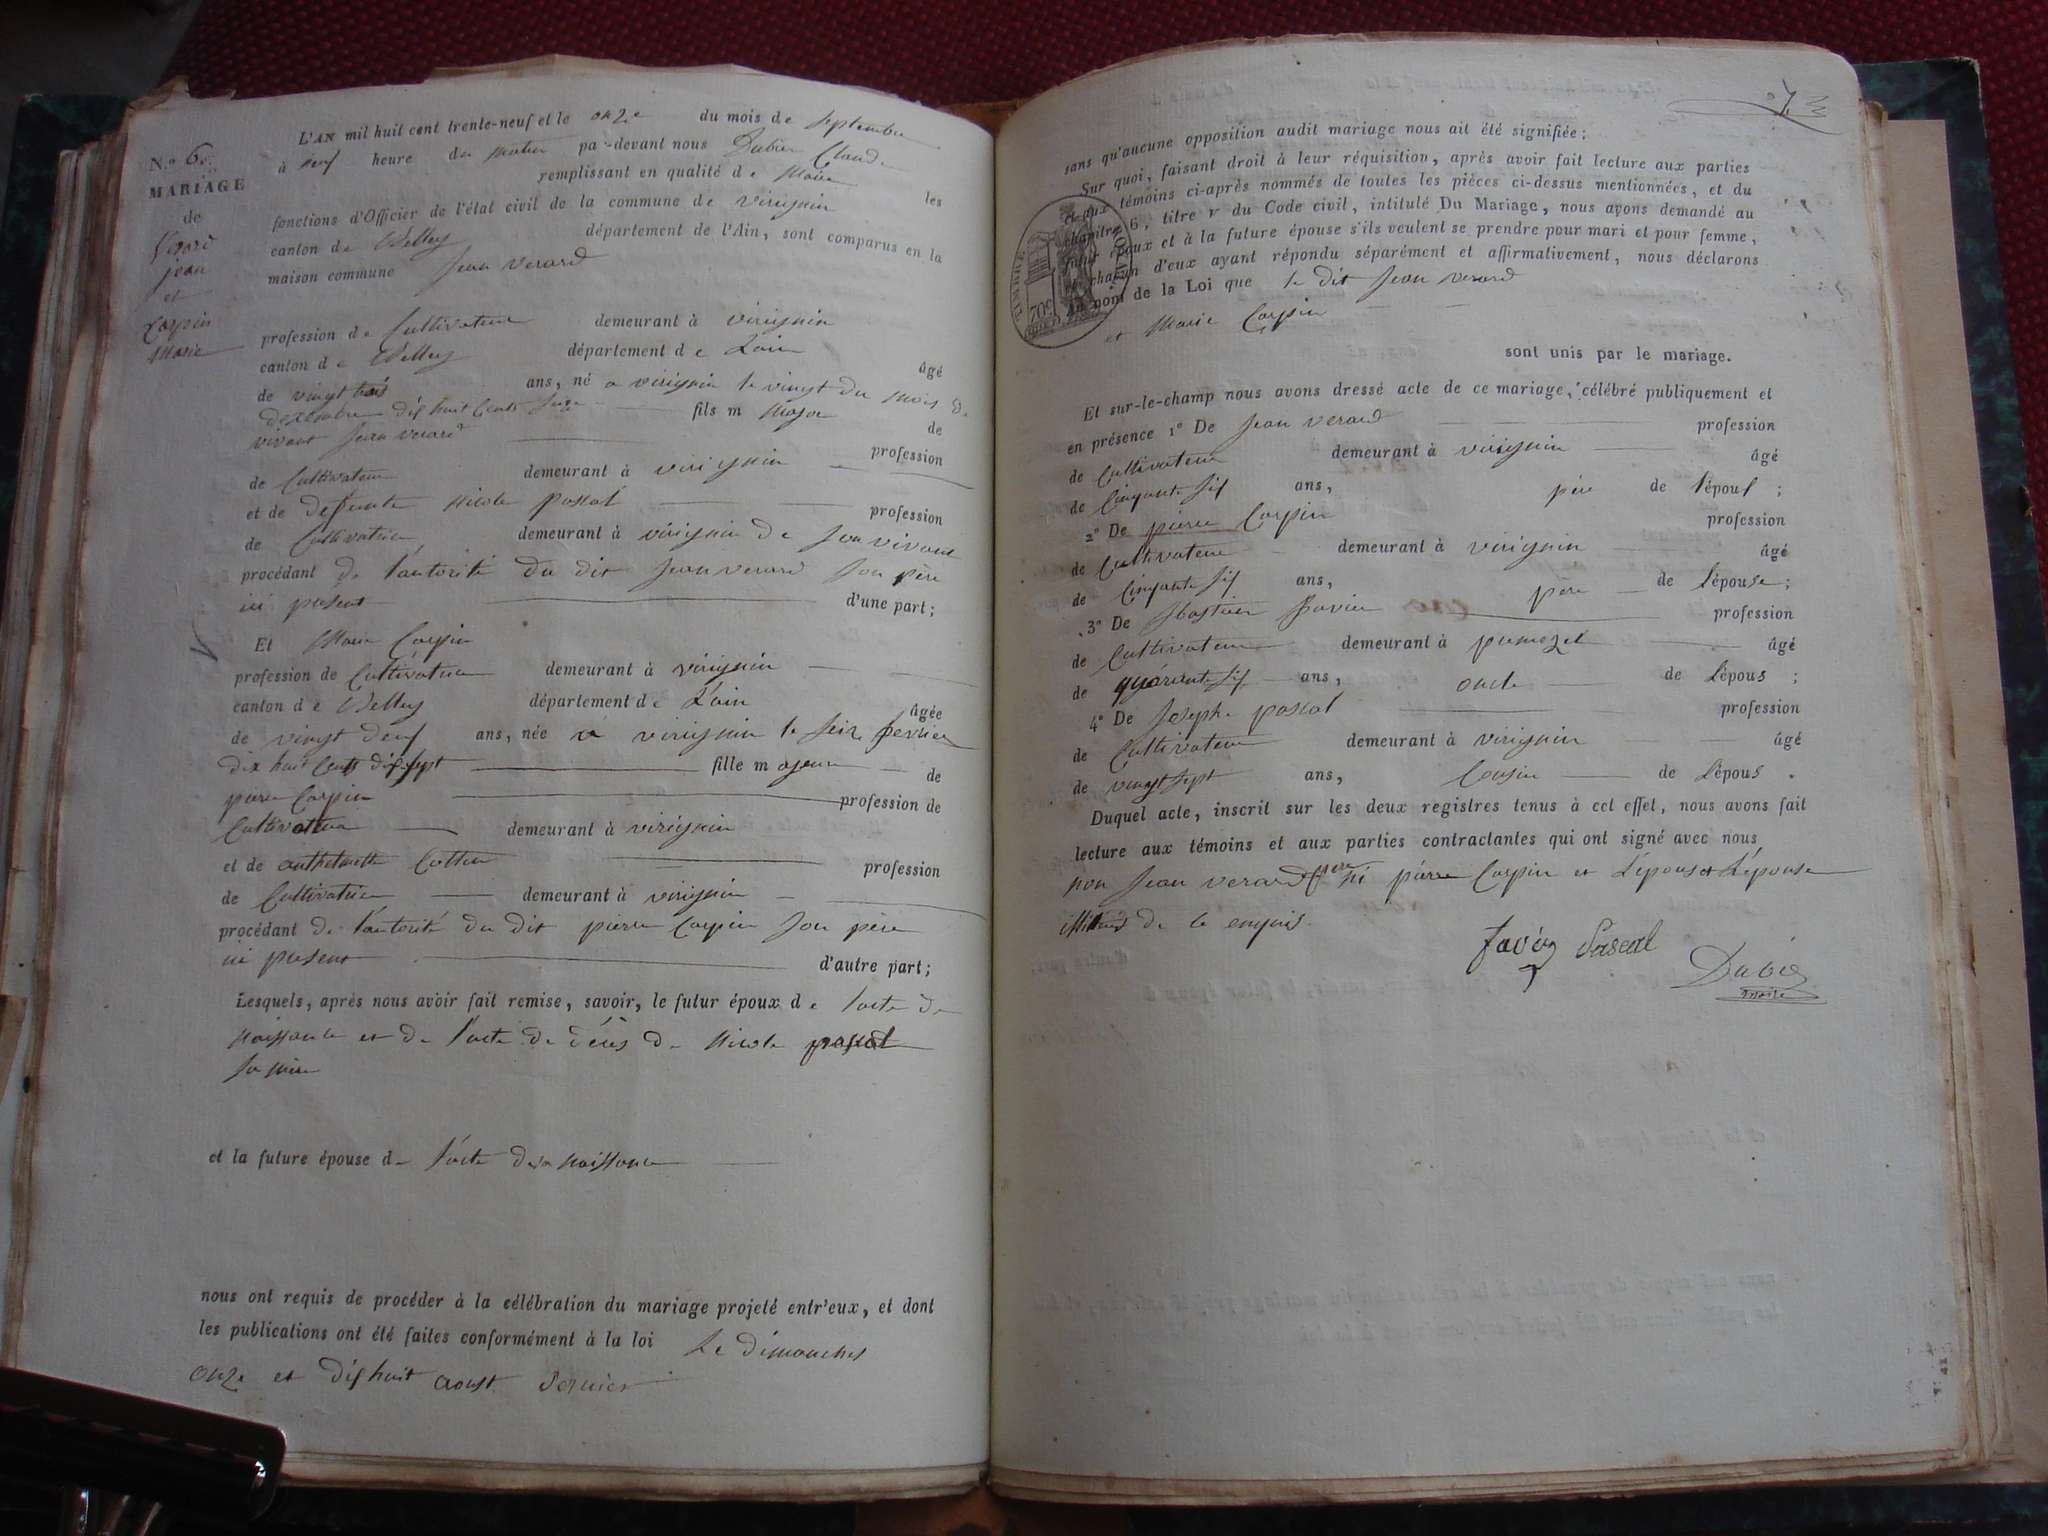 N.º 6.
MARIAGE
de
Verard
jean
et
Carpin
Marie
L'AN mil huit cent trente-neuf et le onze du mois de Septembre
à neuf heure du matin pa-devant nous Dubien Claude
remplissant en qualité de Maire les
fonctions d'Officier de l'état civil de la commune de virignin
canton de Belley département de l'Ain, sont comparus en la
maison commune Jean verard
profession de Cultivateur demeurant à virignin
canton de Belley département de L'ain âgé
de vingt trois ans, né a virignin le vingt du mois de
dexembre dix huit Cents Seize fils m Major de
vivant Jean verard profession
de Cultivateur demeurant à virignin
et de defunte nicole pascal profession
de Cultivatrice demeurant à virignin de Son vivant
procédant de l'autorité du dit Jean verard Son père
ici present d'une part;
Et Marie Carpin
profession de Cultivatrice demeurant à virignin
canton de Belley département de L'ain âgée
de vingt deux ans, née à virignin le Seize fevrier
dix huit Cents dix sept fille majeure de
pierre Carpin profession de
Cultivateur demeurant à virignin
et de anthelmette Cottin profession
de Cultivatrice demeurant à virignin
procédant de l'autorité du dit pierre Carpin Son père
ici present d'autre part;
Lesquels, après nous avoir fait remise, savoir, le futur époux de l'acte de
naissance et de l'acte de décès de nicole pascal
sa mère
et la future épouse de l'acte de sa naissance
nous ont requis de procéder à la célébration du mariage projeté entr'eux, et dont
les publications ont été faites conformément à la loi Le dimanches
onze et dix huit aoust dernier
7
sans qu'aucune opposition audit mariage nous ait été signifiée;
Sur quoi, faisant droit à leur réquisition, après avoir fait lecture aux parties
et aux témoins ci-après nommés de toutes les pièces ci-dessus mentionnées, et du
chapitre 6, titre v du Code civil, intitulé Du Mariage, nous avons demandé au
futur époux et à la future épouse s'ils veulent se prendre pour mari et pour femme,
et chacun d'eux ayant répondu séparément et affirmativement, nous déclarons
au nom de la Loi que le dit Jean verard
et Marie Carpin
sont unis par le mariage.
TIMBRE ROYAL
70c
Et sur-le-champ nous avons dressé acte de ce mariage, célébré publiquement et
en présence 1º De Jean verard profession
de Cultivateur demeurant à virignin âgé
de Cinquante Six ans, père de l'épous;
2º De pierre Carpin profession
de Cultivateur demeurant à virignin âgé
de Cinquante Six ans, père de l'épouse;
3º De Sbastien Favier profession
de Cultivateur demeurant à pumezel âgé
de quarante Six ans, oncle de l'épous;
4º De Joseph pascal profession
de Cultivateur demeurant à virignin âgé
de vingt sept ans, Cousin de l'épous.
Duquel acte, inscrit sur les deux registres tenus à cet effet, nous avons fait
lecture aux témoins et aux parties contractantes qui ont signé avec nous
non Jean verard père ni pierre Carpin et L'epous et L'épouse
illitérés de ce enquis.
favier Pascal
Dubié
maire